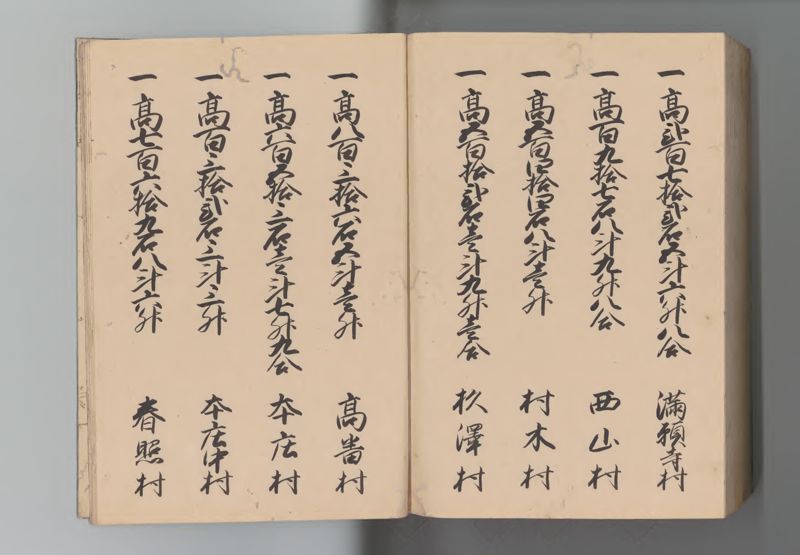 一 高弐百七拾弐石五斗六升八合 満願寺村
一 高百九拾七石八斗九升八合 西山村
一 高五百四拾四石八斗壱升 村木村
一 高五百拾弐石壱斗九升壱合 杉澤村
一 高八百三拾六石五斗壱升 高畨村
一 高六百五拾三石壱斗七升九合 本庄村
一 高百三拾弐石三斗三升 本庄中村
一 高七百六拾九石八斗六升 春照村